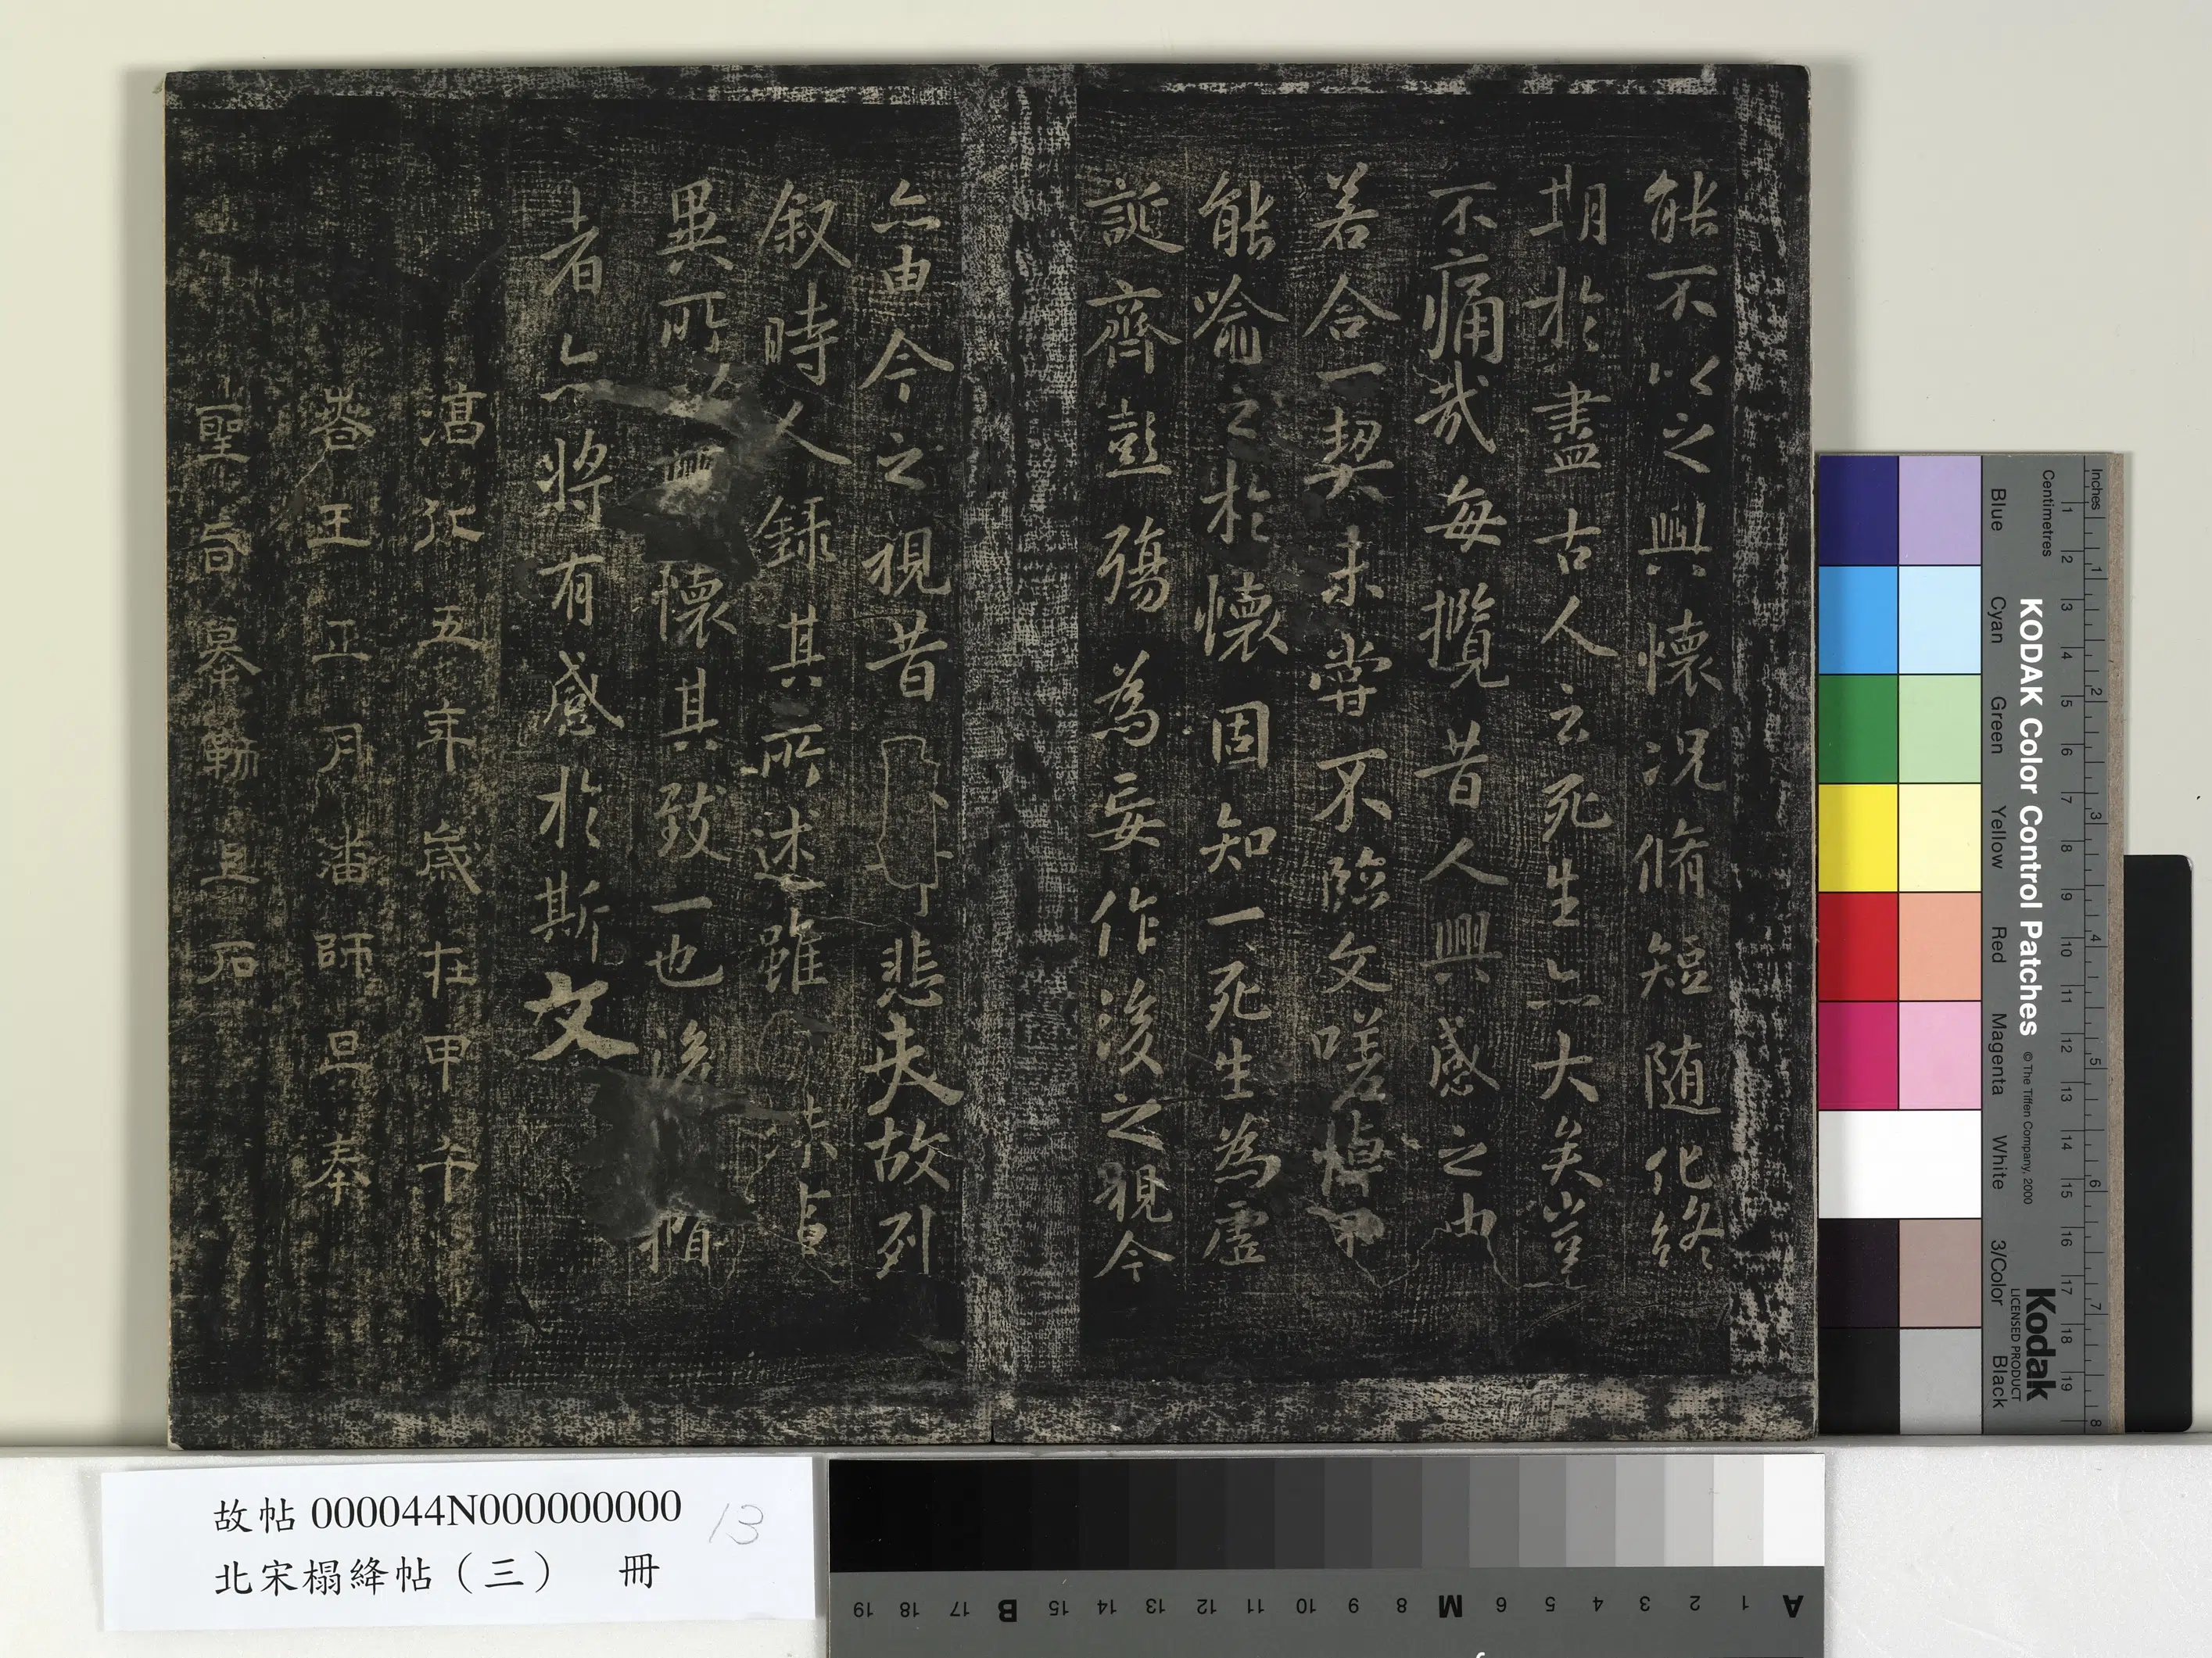 能不以之興懷况脩短随化終
期於盡古人云死生亦大矣豈
不痛哉每攬昔人興感之由
若合一契未嘗不臨文嗟悼不
能喻之於懷固知一死生為虛
誕齊彭殤為妄作後之視今
亦由今之視昔悲夫故列
叙時人錄其所述雖殊事
異所興懷其致一也後攬
者亦將有感於斯文
淳化五年歲在甲午
春王正月潘師旦奉
聖旨摹勒上石
故帖000044N000000000 13
北宋榻絳帖（三） 冊
KODAK Color Control Patches © The Tiffen Company, 2000
Kodak
LICENSED PRODUCT
Inches 1 2 3 4 5 6 7 8
Centimetres 1 2 3 4 5 6 7 8 9 10 11 12 13 14 15 16 17 18 19
Blue Cyan Green Yellow Red Magenta White 3/Color Black
A 1 2 3 4 5 6 M 8 9 10 11 12 13 14 15 B 17 18 19